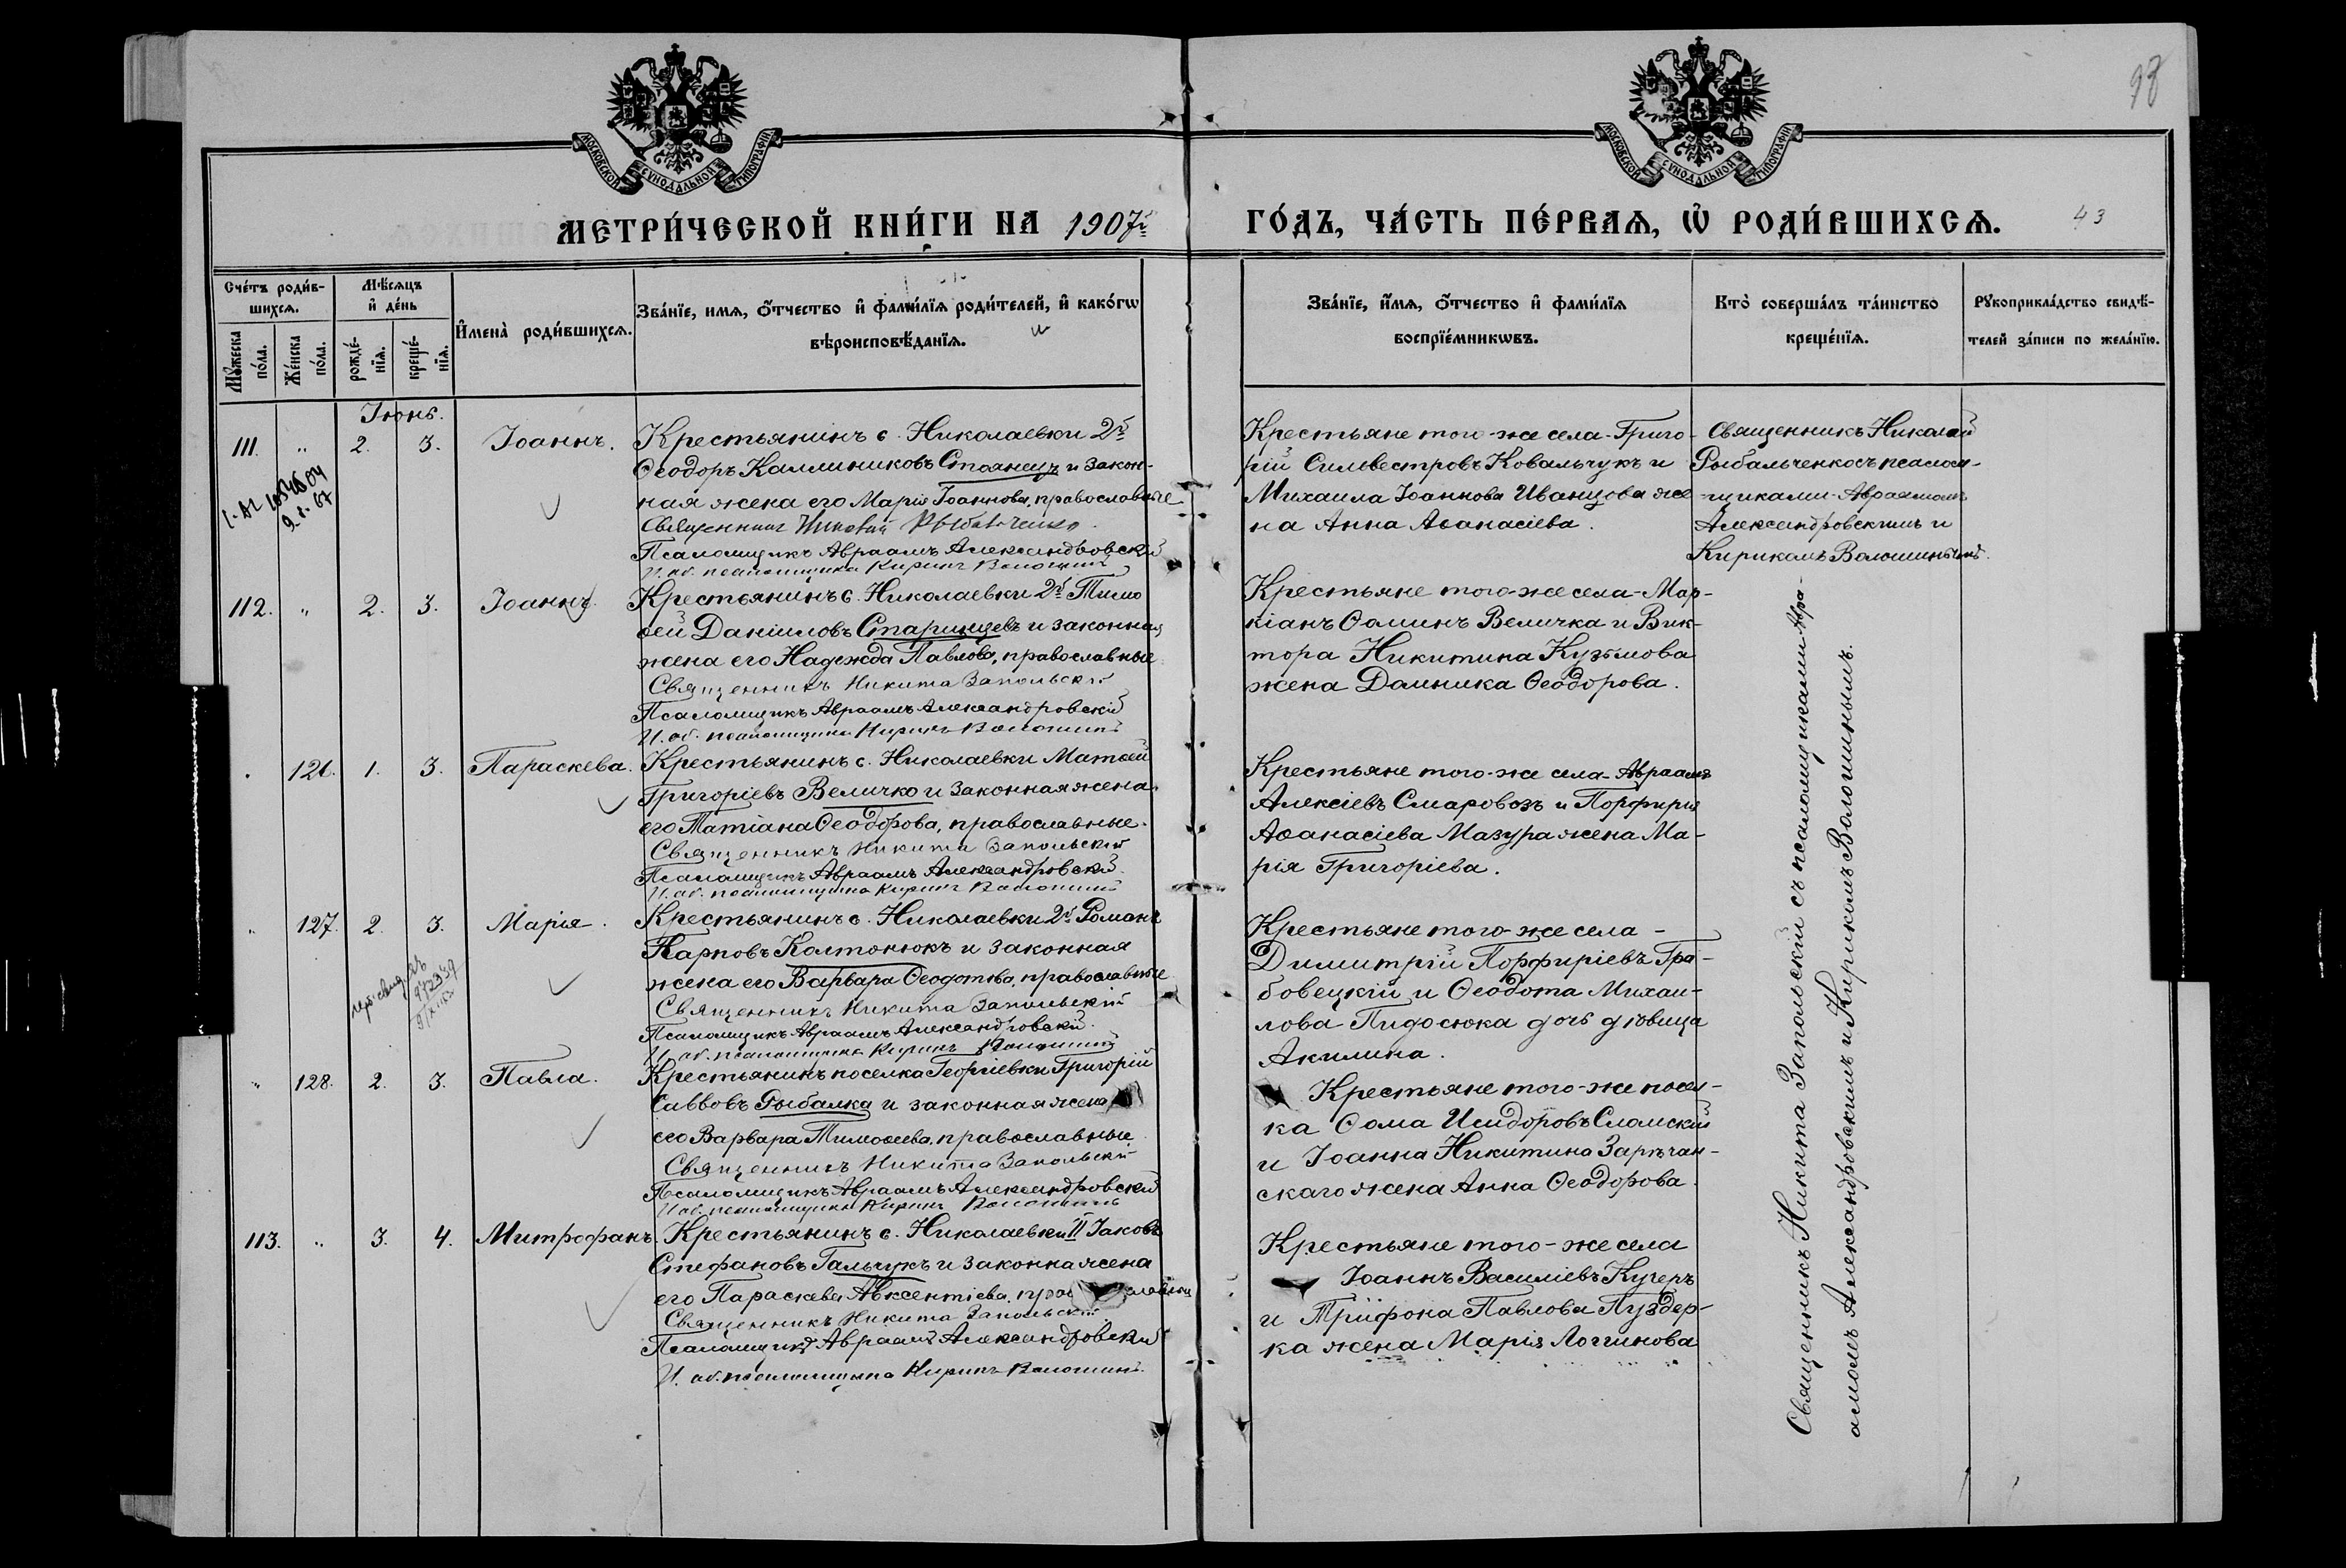 МОСКОВСКОЙ СѴНОДАЛЬНОЙ ТИПОГРАФІИ
МОСКОВСКОЙ СѴНОДАЛЬНОЙ ТИПОГРАФІИ
98
МЕТРИ́ЧЕСКОЙ КНИ́ГИ НА 1907й
ГО́ДЪ, ЧА́СТЬ ПЕ́РВАѦ, Ѡ҆ РОДИ́ВШИХСѦ.
43
Сче́тъ роди́в-
шихсѧ.
Мꙋ́жеска по́ла.
Же́нска по́ла.
Мѣ́сѧцъ
и҆ де́нь
рожде́-
нїѧ.
креще́-
нїѧ.
И҆мена̀ роди́вшихсѧ.
Зва́нїе, имѧ, ѻ҆́тчество и҆ фами́лїѧ роди́телей, и҆ како́гѡ
вѣроисповѣ́данїѧ.
Зва́нїе, и҆́мѧ, ѻ҆́тчество и҆ фами́лїѧ
воспрїе́мникѡвъ.
Кто̀ соверша́лъ та́инство
креще́нїѧ.
Рꙋкоприкла́дство свидѣ́-
телей за́писи по жела́нїю.
Іюнь.
111. " 2. 3. Іоаннъ.
Крестьянинъ с. Николаевки 2й
Ѳеодоръ Каллиниковъ Стоянецъ и закон-
ная жена его Марія Іоаннова, православные
Священникъ Николай Рыбальченко.
Псаломщикъ Авраамъ Александровскій
И. об. псаломщика Кирикъ Волошинъ
Крестьяне того-же села-Григо-
рій Сильвестровъ Ковальчукъ и
Михаила Іоаннова Иванцова же-
на Анна Аѳанасіева.
Священникъ Николай
Рыбальченко съ псалом-
щиками Авраамомъ
Александровскимъ и
Кирикомъ Волошинымъ.
112. " 2. 3. Іоаннъ.
Крестьянинъ с. Николаевки 2й Тимо
ѳей Даниіловъ Старинцевъ и законная
жена его Надежда Павлова, православные
Священникъ Никита Запольскій
Псаломщикъ Авраамъ Александровскій
И. об. псаломщика Кирикъ Волошинъ
Крестьяне того-же села-Мар-
кіанъ Ѳоминъ Величка и Вик-
тора Никитина Кузьмова
жена Домника Ѳеодорова.
126. 1. 3. Параскева.
Крестьянинъ с. Николаевки Матѳей
Григоріевъ Величко и законная жена
его Татіана Ѳеодорова, православные.
Священникъ Никита Запольскій
Псаломщикъ Авраамъ Александровскій.
И. об. псаломщика Кирикъ Волошинъ
Крестьяне того-же села-Авраамъ
Алексіевъ Смаровозъ и Порфирія
Аѳанасіева Мазура жена Ма-
рія Григоріева.
" 127. 2. 3. Марія.
Крестьянинъ с. Николаевки 2й Романъ
Карповъ Колтонюкъ и законная
жена его Варвара Ѳеодотова, православные
Священникъ Никита Запольскій
Псаломщикъ Авраамъ Александровскій.
И. об. псаломщика Кирикъ Волошинъ
Крестьяне того-же села -
Димитрій Порфиріевъ Гра-
бовецкій и Ѳеодота Михаи-
лова Пидосюка дочь дѣвица
Акилина.
" 128. 2. 3. Павла.
Крестьянинъ поселка Георгіевки Григорій
Саввовъ Рыбалка и законная жена
его Варвара Тимоѳеева, православные
Священникъ Никита Запольскій
Псаломщикъ Авраамъ Александровскій
И. об. псаломщика Кирикъ Волошинъ
Крестьяне того-же посел-
ка Ѳома Исидоровъ Сломскій
и Іоанна Никитина Зарѣчан-
скаго жена Анна Ѳеодорова.
113. " 3. 4. Митрофанъ.
Крестьянинъ с. Николаевки II Іаковъ
Стефановъ Гальчукъ и законна жена
его Параскева Авксентіева, православны
Священникъ Никита Запольскій
Псаломщикъ Авраамъ Александровскій
И. об. псаломщика Кирикъ Волошинъ.
Крестьяне того-же села
Іоаннъ Василіевъ Кучеръ
и Трифона Павлова Пуздер-
ка жена Марія Логгинова
Священникъ Никита Запольскій съ псаломщиками Авра-
амомъ Александровскимъ и Кирикомъ Волошинымъ.